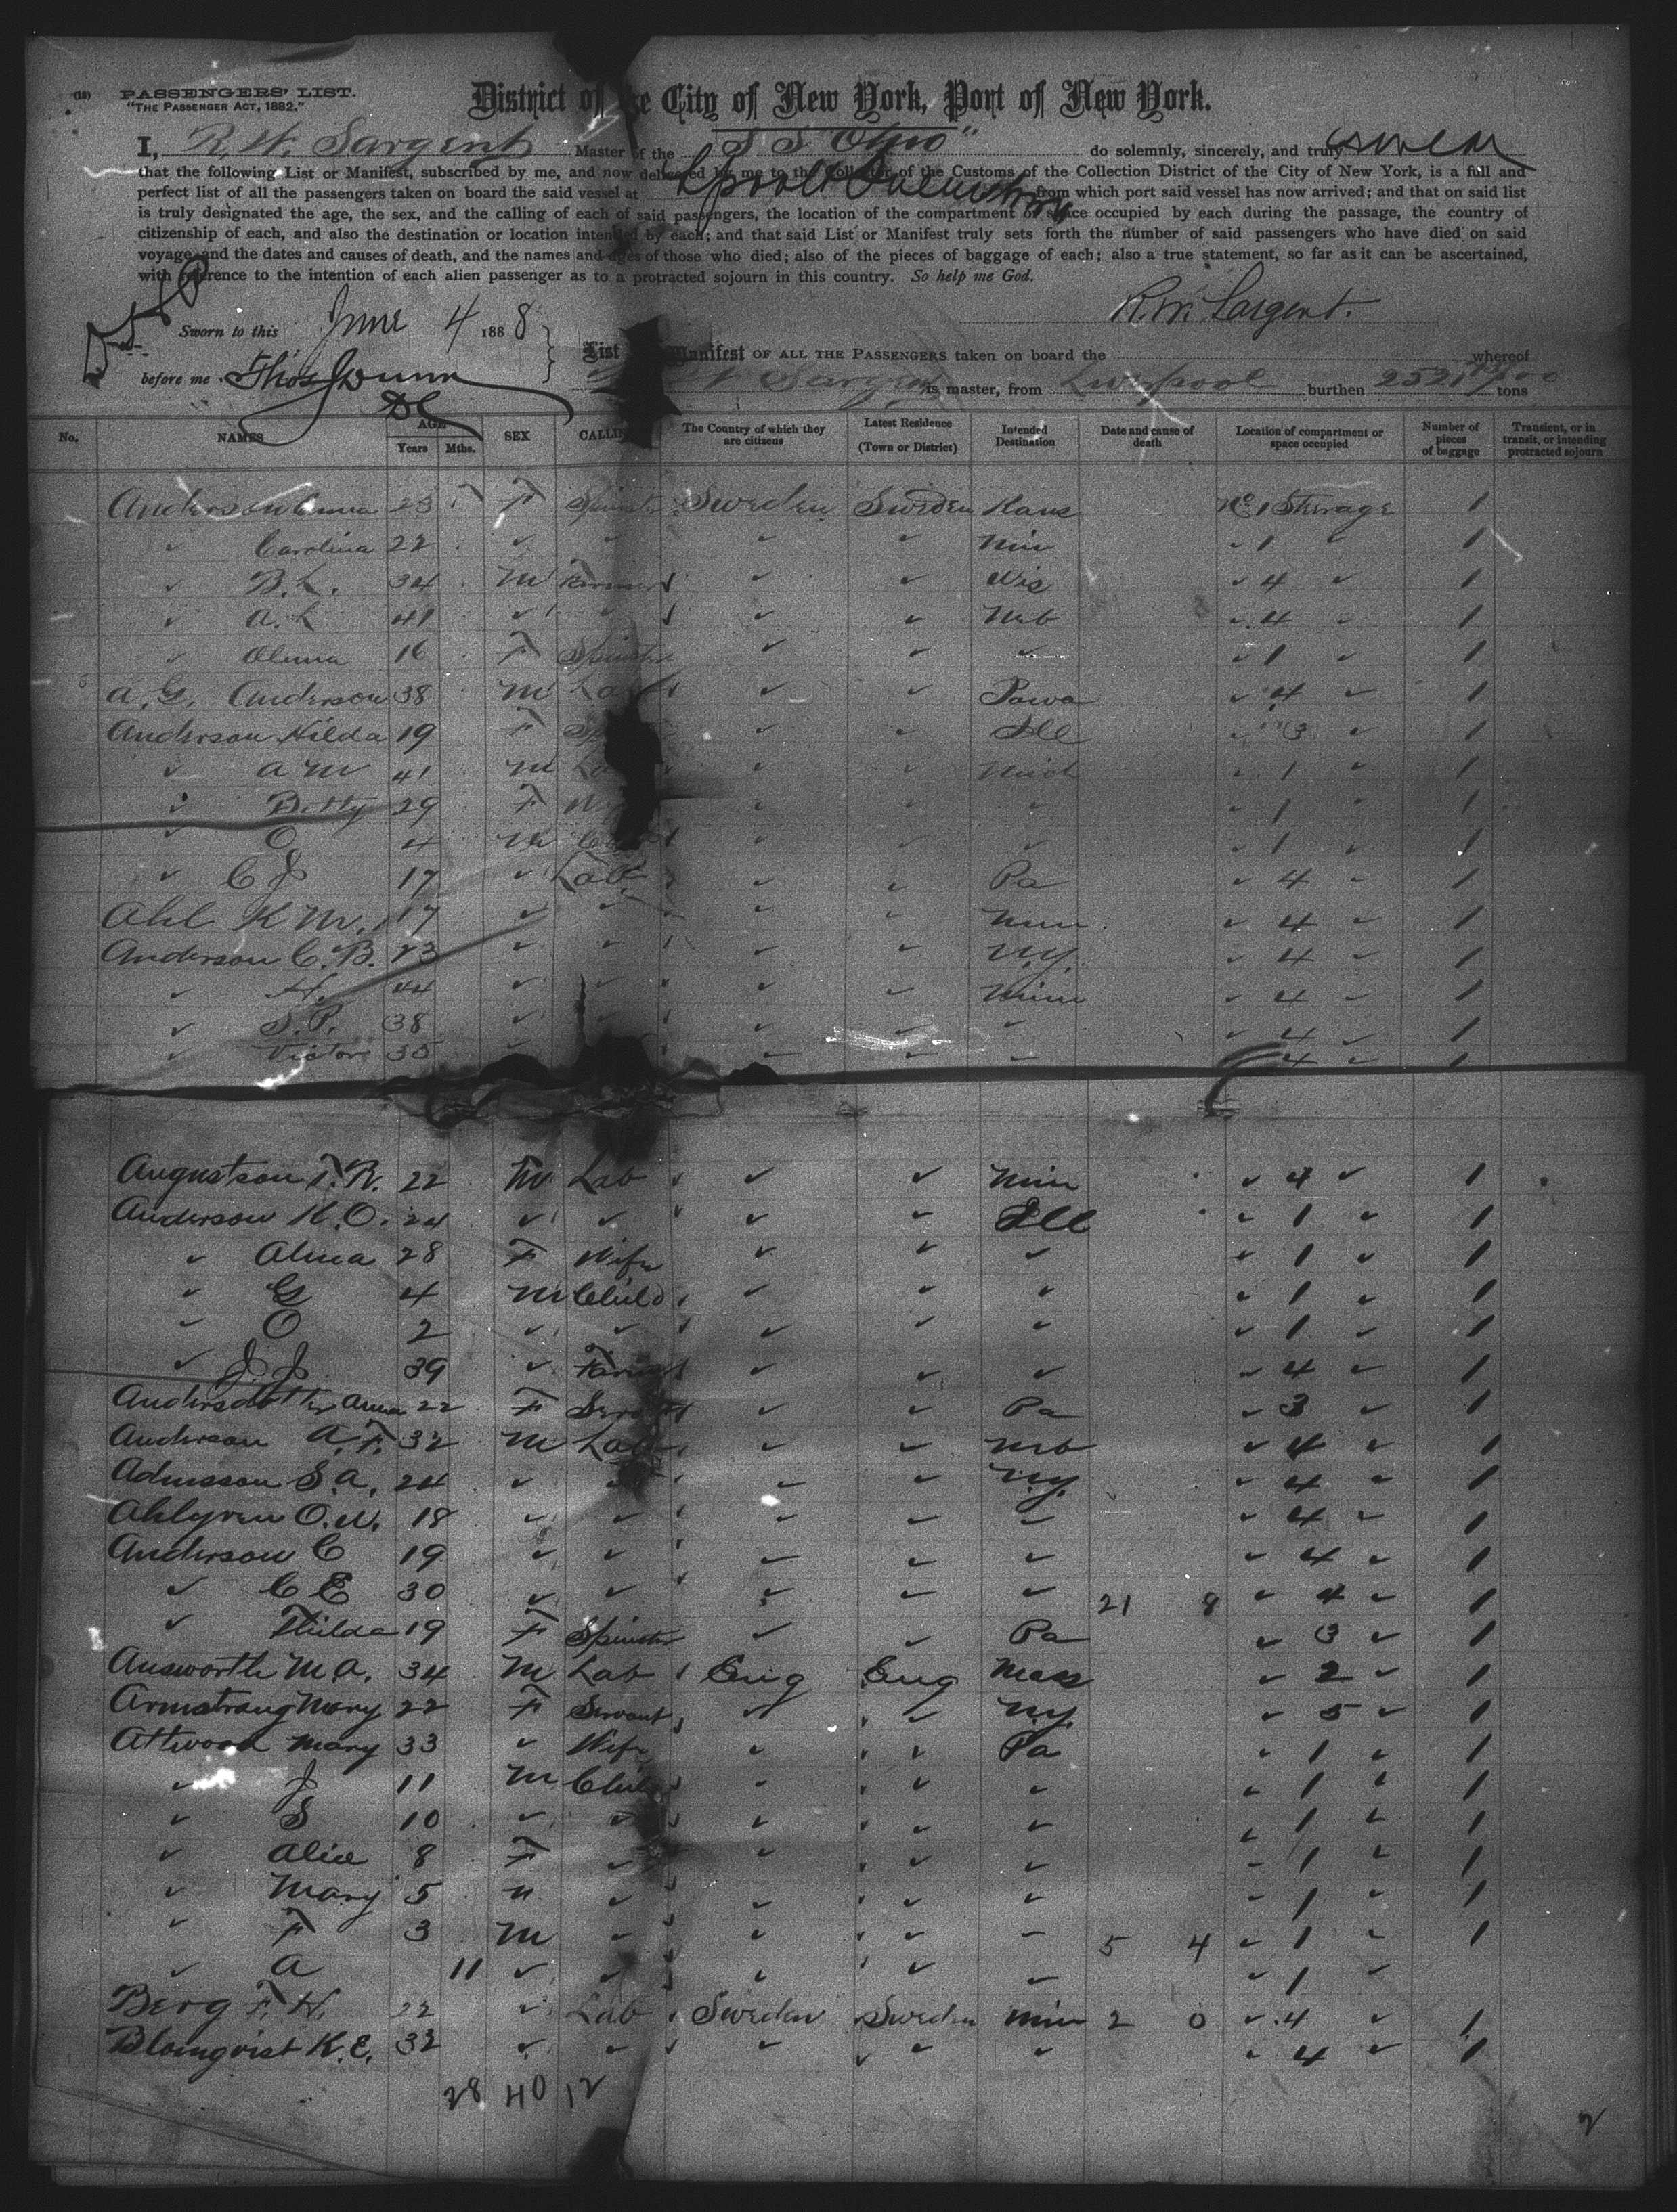 (18) PASSENGERS' LIST.
"THE PASSENGER ACT, 1882."
District of the City of New York, Port of New York.
I, R. W. Sargent Master of the "S S Ohio" do solemnly, sincerely, and truly swear
that the following List or Manifest, subscribed by me, and now delivered by me to the Collector of the Customs of the Collection District of the City of New York, is a full and
perfect list of all the passengers taken on board the said vessel at from which port said vessel has now arrived; and that on said list
is truly designated the age, the sex, and the calling of each of said passengers, the location of the compartment or space occupied by each during the passage, the country of
citizenship of each, and also the destination or location intended by each; and that said List or Manifest truly sets forth the number of said passengers who have died on said
voyage, and the dates and causes of death, and the names and ages of those who died; also of the pieces of baggage of each; also a true statement, so far as it can be ascertained,
with reference to the intention of each alien passenger as to a protracted sojourn in this country. So help me God.
R. W. Sargent.
Sworn to this June 4 1888
before me Thos J Dunn
List Manifest OF ALL THE PASSENGERS taken on board the whereof
W Sargent is master, from Liverpool burthen 2521 tons
No. NAMES AGE Years Mths. SEX CALLING The Country of which they are citizens Latest Residence (Town or District) Intended Destination Date and cause of death Location of compartment or space occupied Number of pieces of baggage Transient, or in transit, or intending protracted sojourn
Anderson Emma 23 F Spinster Sweden Sweden Kans No 1 Sterage 1
✓ Carolina 22 ✓ ✓ ✓ ✓ Min ✓ 1 ✓ 1
✓ B. L. 34 M Farmer ✓ ✓ Wis ✓ 4 ✓ 1
✓ A. L 41 ✓ ✓ ✓ ✓ Neb ✓ 4 ✓ 1
✓ Olivia 16 F Spinster ✓ ✓ ✓ ✓ 1 ✓ 1
A. G. Anderson 38 M Lab ✓ ✓ Iowa ✓ 4 ✓ 1
Anderson Hilda 19 F Sp ✓ ✓ Ill ✓ 3 ✓ 1
✓ A M 41 M La ✓ ✓ Mich ✓ 1 ✓ 1
✓ Betty 29 F W ✓ ✓ ✓ ✓ 1 ✓ 1
✓ O 4 M C ✓ ✓ ✓ ✓ 1 ✓ 1
✓ C J 17 ✓ Lab ✓ ✓ Pa ✓ 4 ✓ 1
Ahl K M. 17 ✓ ✓ ✓ ✓ Min ✓ 4 ✓ 1
Anderson C. B. 23 ✓ ✓ ✓ ✓ N.Y. ✓ 4 ✓ 1
✓ H. 44 ✓ ✓ ✓ ✓ Minn ✓ 4 ✓ 1
✓ S. P. 38 ✓ ✓ ✓ ✓ ✓ 4 ✓ 1
✓ Victor 35 ✓ ✓ ✓ ✓ 4 ✓ 1
Augustson F. R. 22 M Lab ✓ ✓ Min ✓ 4 ✓ 1
Anderson K. O. 24 ✓ ✓ ✓ ✓ Ill ✓ 1 ✓ 1
✓ Alma 28 F Wife ✓ ✓ ✓ ✓ 1 ✓ 1
✓ G 4 M Child ✓ ✓ ✓ ✓ 1 ✓ 1
✓ O 2 ✓ ✓ ✓ ✓ ✓ ✓ 1 ✓ 1
✓ J J 39 ✓ Farmer ✓ ✓ ✓ ✓ 4 ✓ 1
Andersdotter Anna 22 F Servt ✓ ✓ Pa ✓ 3 ✓ 1
Anderson A. F. 32 M Lab ✓ ✓ Neb ✓ 4 ✓ 1
Admsson S. A. 24 ✓ ✓ ✓ ✓ N.Y. ✓ 4 ✓ 1
Ahlgren O. W. 18 ✓ ✓ ✓ ✓ ✓ ✓ 4 ✓ 1
Anderson C 19 ✓ ✓ ✓ ✓ ✓ ✓ 4 ✓ 1
✓ C E 30 ✓ ✓ ✓ ✓ ✓ 21 8 ✓ 4 ✓ 1
✓ Thilda 19 F Spinster ✓ ✓ Pa ✓ 3 ✓ 1
Answorth M A. 34 M Lab Eng Eng Mass ✓ 2 ✓ 1
Armstrong Mary 22 F Servant ✓ ✓ N.Y. ✓ 5 ✓ 1
Attwood Mary 33 ✓ Wife ✓ ✓ Pa ✓ 1 ✓ 1
✓ J 11 M Child ✓ ✓ ✓ ✓ 1 ✓ 1
✓ S 10 ✓ ✓ ✓ ✓ ✓ ✓ 1 ✓ 1
✓ Alice 8 F ✓ ✓ ✓ ✓ ✓ 1 ✓ 1
✓ Mary 5 " ✓ ✓ ✓ ✓ ✓ 1 ✓ 1
✓ F 3 M ✓ ✓ ✓ ✓ 5 4 ✓ 1 ✓ 1
✓ A 11 ✓ ✓ ✓ ✓ ✓ ✓ 1 ✓
Berg F. H. 22 ✓ Lab Sweden Sweden Min 2 0 ✓ 4 ✓ 1
Blomqvist K. E. 32 ✓ ✓ ✓ ✓ ✓ ✓ 4 ✓ 1
28 40 12
2